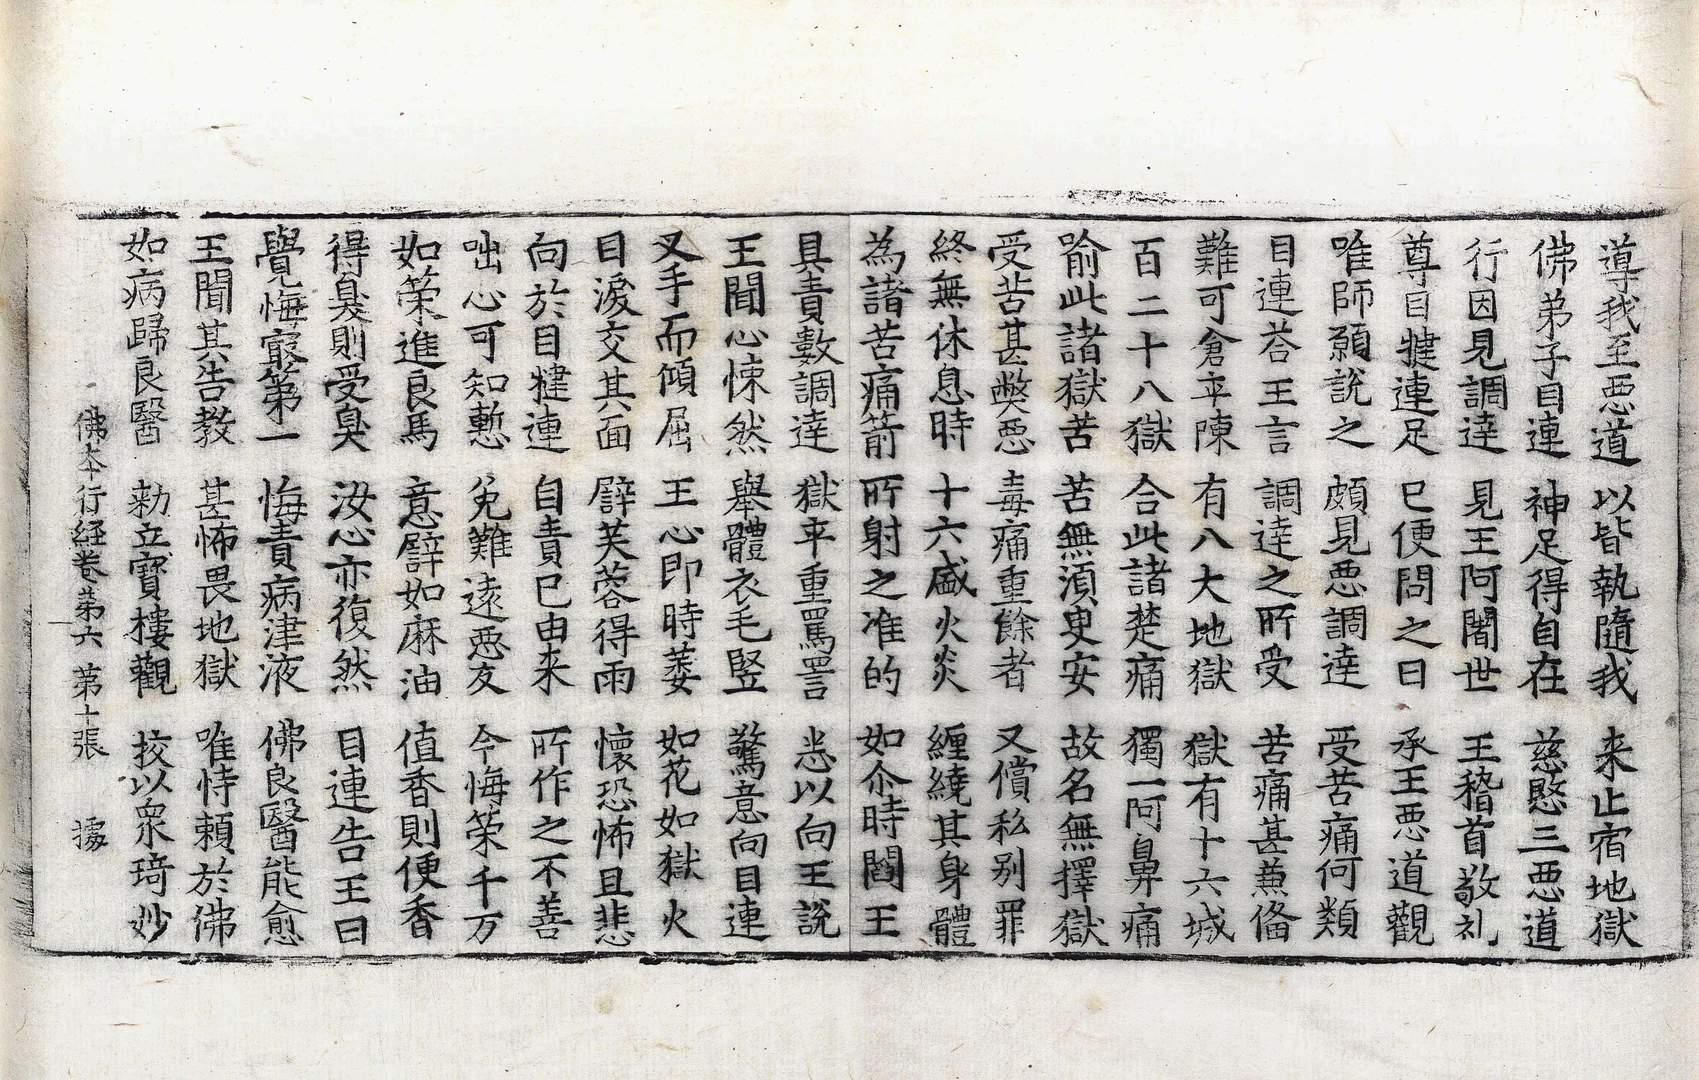 導我至惡道　以皆執隨我　来止宿地獄
佛弟子目連　神足得自在　慈愍三惡道
行因見調達　見王阿闍世　王稽首敬礼
尊目揵連足　已便問之曰　承王惡道觀
唯師願說之　頗見惡調達　受苦痛何類
目連荅王言　調達之所受　苦痛甚萧俻
難可倉卒陳　有八大地獄　獄有十六城
百二十八獄　合此諸楚痛　獨一阿鼻痛
喻此諸獄苦　苦無湏臾安　故名無擇獄
受苦甚獘惡　毒痛重餘者　又償私别罪
終無休息時　十六盛火炎　纏繞其身體
為諸苦痛箭　所射之准的　如尒時閻王
具責數調達　獄卒重罵詈　悉以向王說
王聞心悚然　舉體衣毛竪　驚意向目連
叉手而傾屈　王心即時萎　如花如獄火
目淚交其面　譬芙蓉得雨　懷恐怖且悲
向於目揵連　自責已由来　所作之不善
咄心可知慙　免難遠惡友　今悔榮千万
如策進良馬　意譬如麻油　值香則便香
得臭則受臭　汝心亦復然　目連告王曰
覺悔㝡第一　悔責病津液　佛良醫能愈
王聞其告教　甚怖畏地獄　唯恃賴於佛
如病歸良醫　勑立寶樓觀　挍以衆琦妙
佛夲行経卷第六　第十張　據